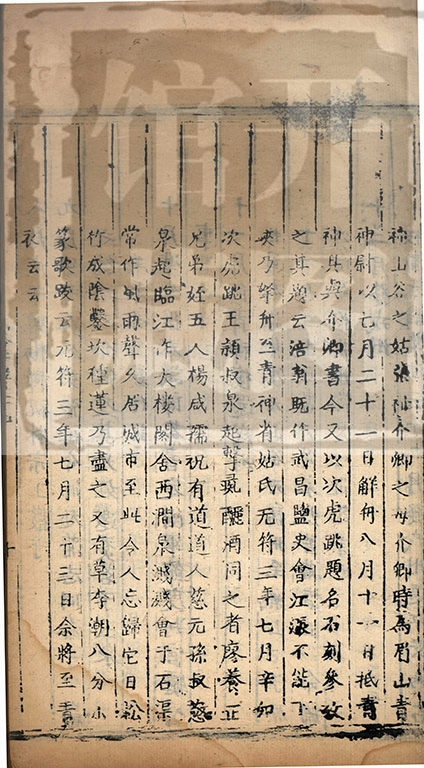 神山谷之姑張祉介卿之母介卿時為眉山青
神尉以七月二十一日解舟八月十一日抵青
神具與介卿書今又以次虎跳題名石刻參攷
之其題云涪翁既作武昌鹽史會江漲不能下
峽乃拏舟至青神省姑氏元符三年七月辛卯
次虎跳王頴叔泉起擊鼉釃酒同之者廖養正
兄弟姪五人楊咸孺祝有道道人慈元孫叔慈
泉起臨江作大樓閣舍西澗泉濺濺會于石渠
常作風雨聲久居城市至此令人忘歸它日松
竹成陰鑿坎種蓮乃盡之又有草李潮八分小
篆歌跋云元符三年七月二十三日余將至青
衣云云